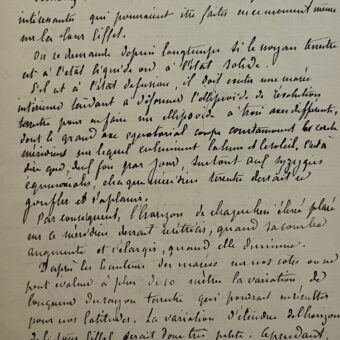 intéressantes qui pourraient être faites en ce moment même
sur la tour Eiffel.
On se demande depuis longtemps si le noyau terrestre
est à l'état liquide ou à l'état solide.
S'il est à l'état de fusion, il doit exister une marée
intérieure tendant à déformer l'ellipsoïde de révolution
terrestre pour en faire un ellipsoïde à trois axes différents,
dont le grand axe équatorial coupe constamment le cercle
méridien sur lequel culminent la lune et le soleil, c'est à
dire que, deux fois par jour, surtout aux syzygies
équinoxiales, chaque méridien terrestre devrait se
gonfler et s'aplanir.
Par conséquent, l'horizon de chaque lieu élevé placé
sur ce méridien devrait se rétrécir, quand sa courbe
augmente et s'élargir, quand elle diminue.
D'après les hauteurs des marées sur nos côtes on ne
peut évaluer à plus de 10 mètres la variation de
longueur du rayon terrestre qui pourrait en résulter
pour nos latitudes. La variation d'étendue de l'horizon
de la tour Eiffel serait donc très petite. Cependant,